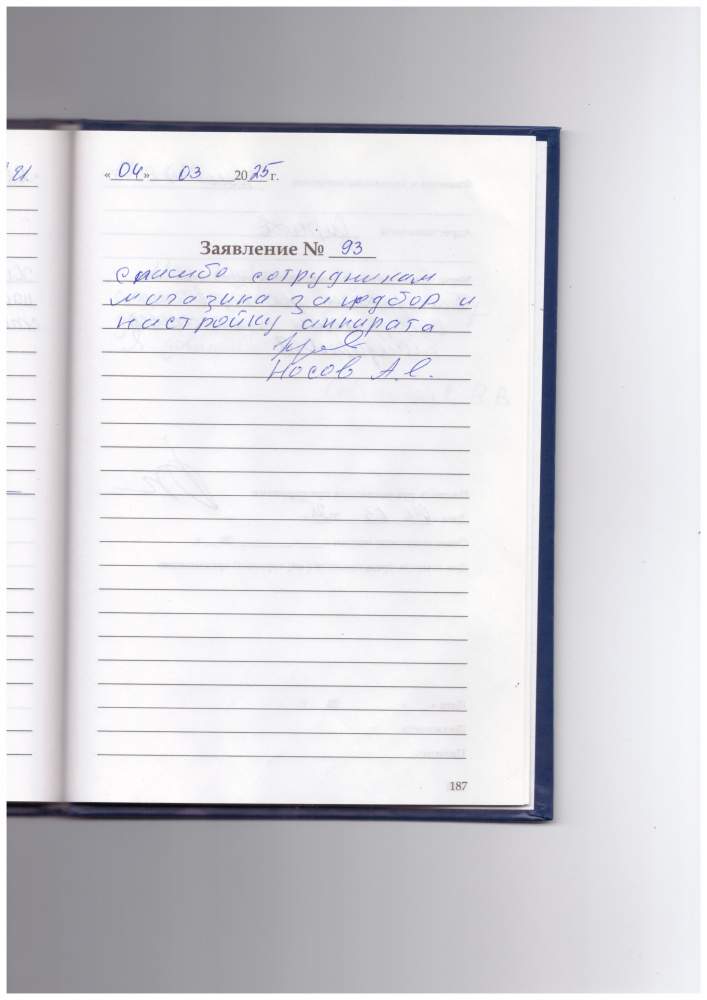 И.
«04» 03 2025 г.
Заявление № 93
спасибо сотрудникам
магазина за подбор и
настройку аппарата
Носов А.С.
187